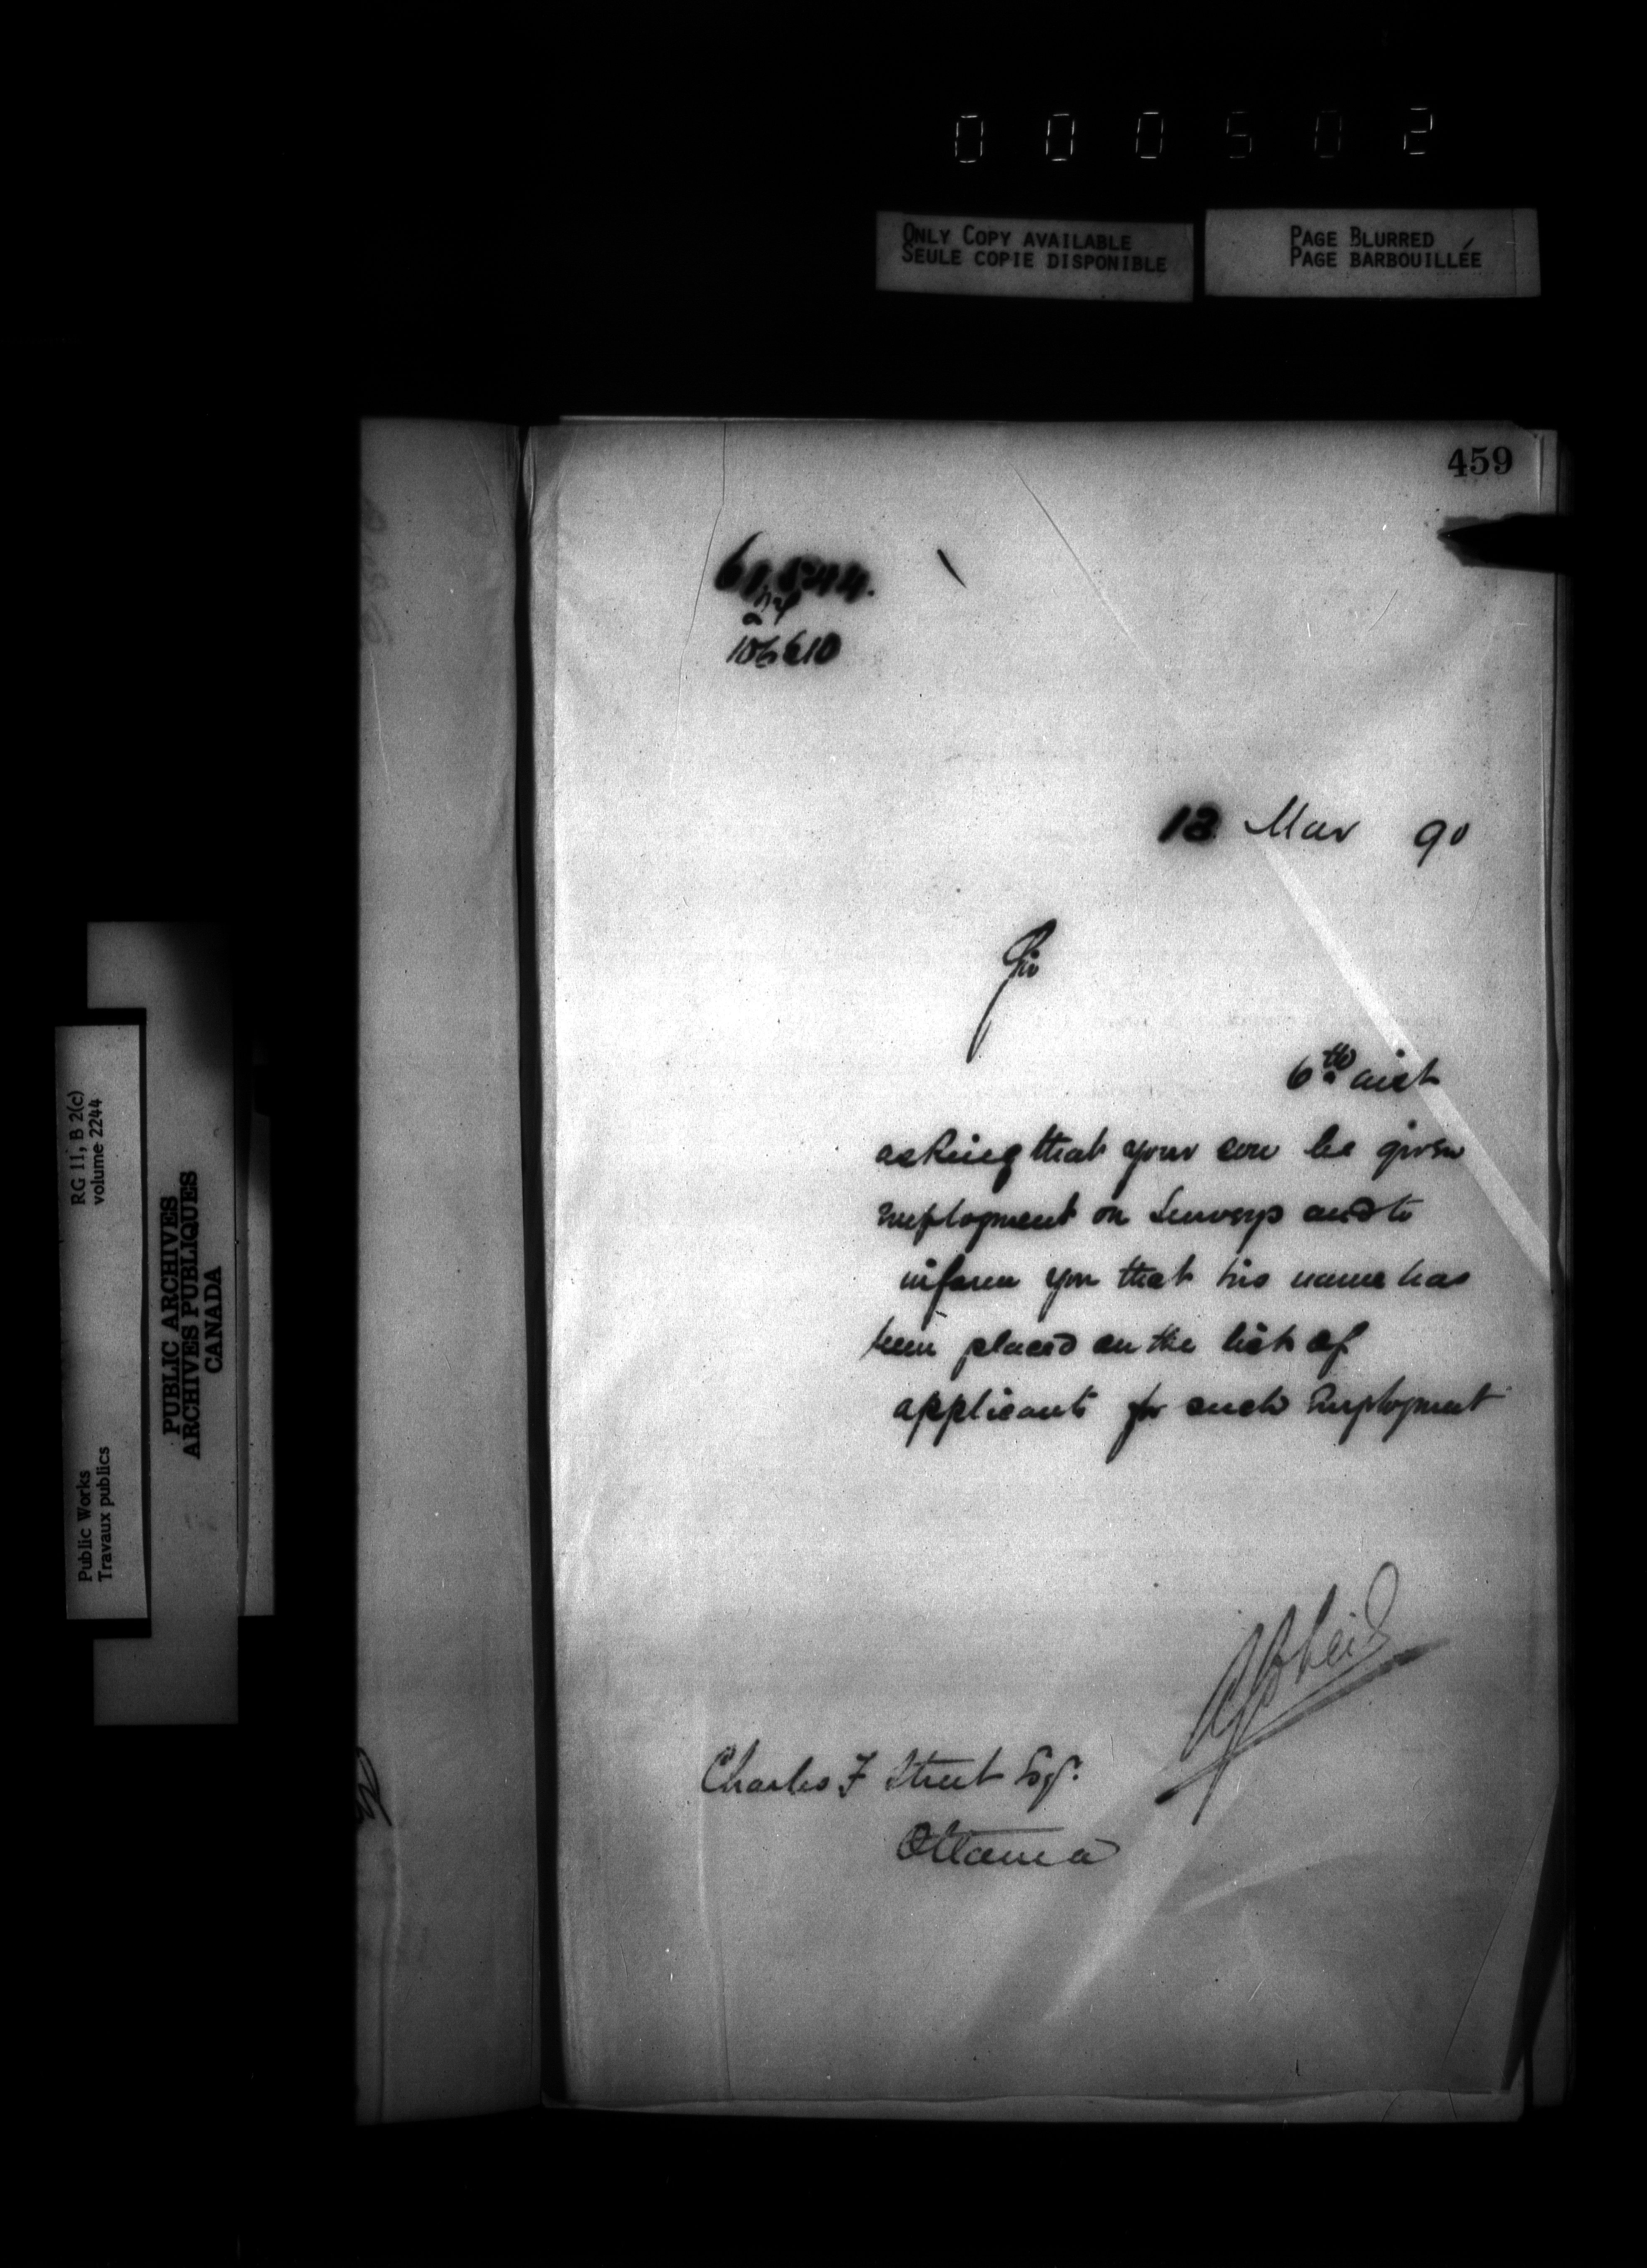 000502
ONLY COPY AVAILABLE
SEULE COPIE DISPONIBLE
PAGE BLURRED
PAGE BARBOUILLÉE
459
106610
13 Mar 90
Sir
6th inst
asking that your son be given
employment on Surveys and to
inform you that his name has
been placed on the list of
applicants for such Employment
Charles F Street Esqr.
Ottawa
RG 11, B 2(c)
volume 2244
Public Works
Travaux publics
PUBLIC ARCHIVES
ARCHIVES PUBLIQUES
CANADA